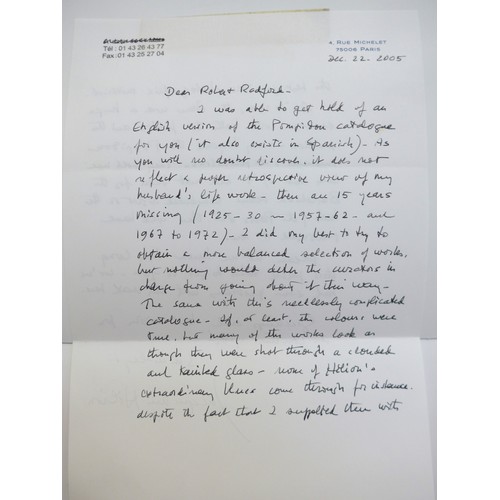 Tél : 01 43 26 43 77
Fax : 01 43 25 27 04
4, RUE MICHELET
75006 PARIS
Dec. 22. 2005
Dear Robert Redford -
I was able to get hold of an
English version of the Pompidou catalogue
for you (it also exists in Spanish) - As
you will no doubt discover, it does not
reflect a proper retrospective view of my
husband's life work - there are 15 years
missing (1925-30 - 1957-62 - and
1967 to 1972) - I did my best to try to
obtain a more balanced selection of works,
but nothing would deter the curators in
charge from going about it their way -
The same with this needlessly complicated
catalogue - If, at least, the colours were
true, but many of the works look as
though they were shot through a clouded
and tainted glass - none of Hélion's
extraordinary blues come through for instance.
despite the fact that I supplied them with